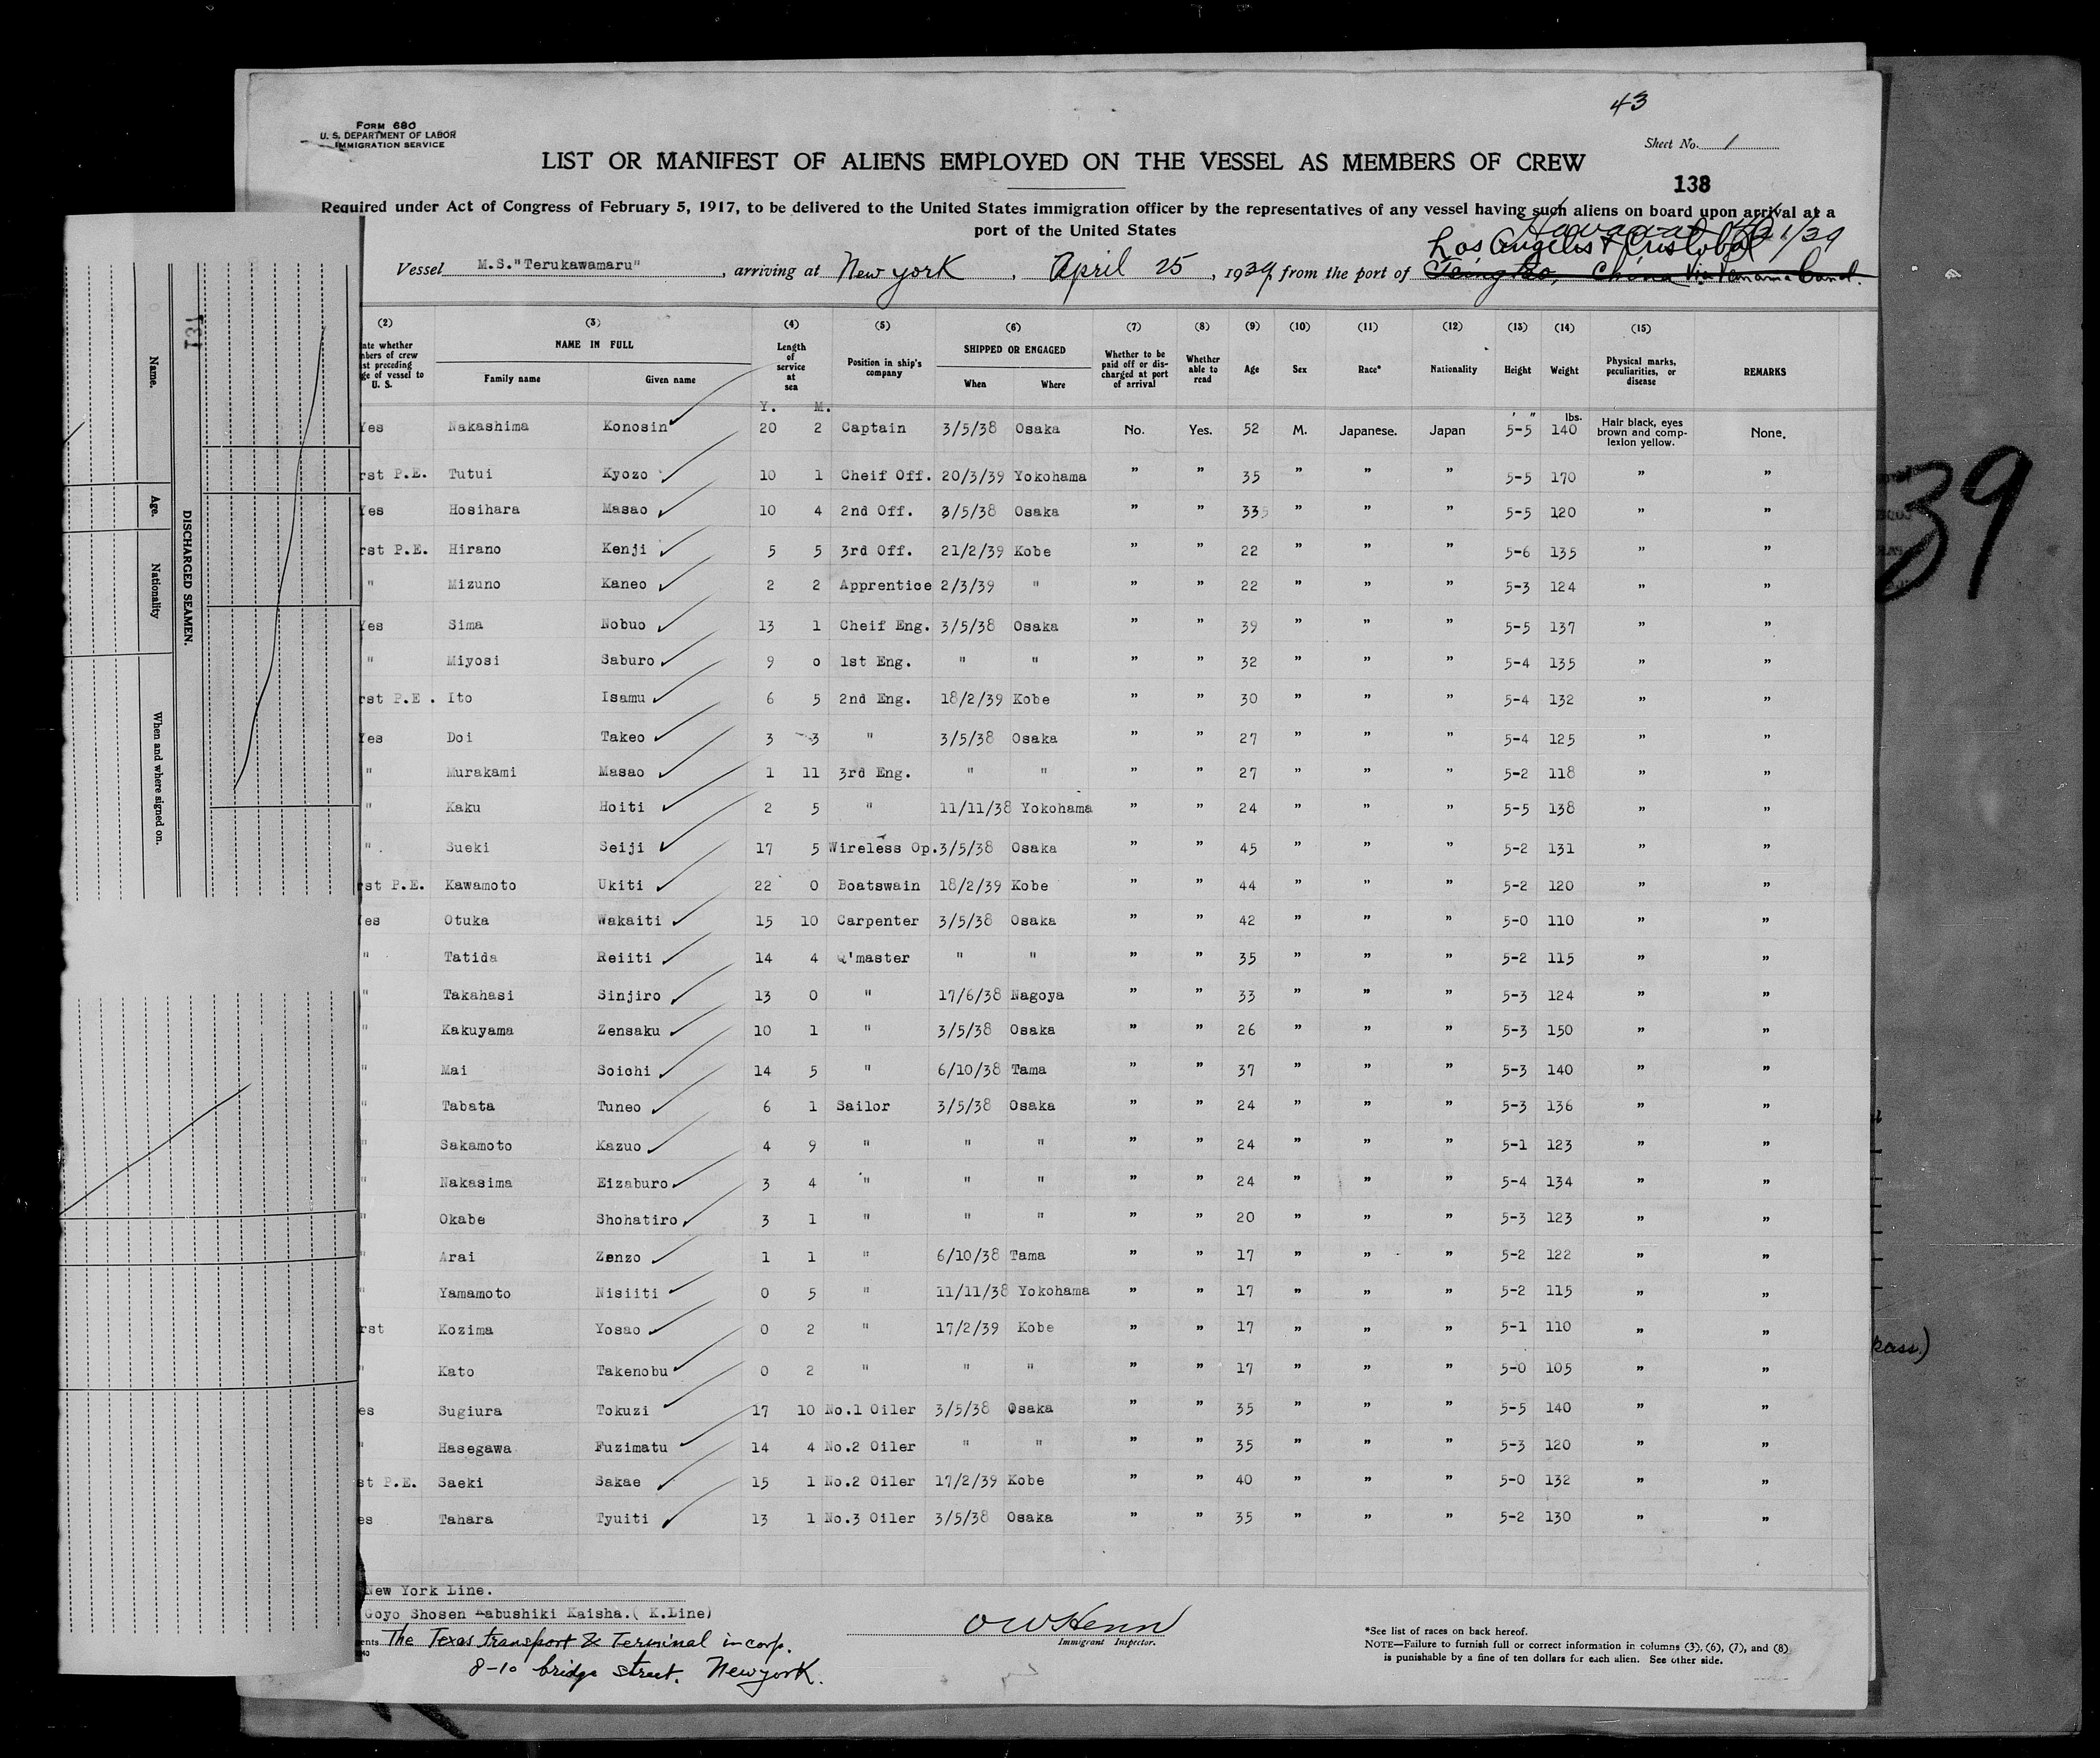 43
FORM 680
U. S. DEPARTMENT OF LABOR
IMMIGRATION SERVICE
Sheet No. 1
LIST OR MANIFEST OF ALIENS EMPLOYED ON THE VESSEL AS MEMBERS OF CREW
138
Required under Act of Congress of February 5, 1917, to be delivered to the United States immigration officer by the representatives of any vessel having such aliens on board upon arrival at a
port of the United States
Los Angeles & Cristobal
Vessel M.S."Terukawamaru", arriving at New york, April 25, 1939, from the port of Tsingtao, China Via Panama Canal.
(2) (3) (4) (5) (6) (7) (8) (9) (10) (11) (12) (13) (14) (15)
ate whether
bers of crew
st preceding
ge of vessel to
U. S.
NAME IN FULL
Family name Given name
Length
of
service
at
sea
Position in ship's
company
SHIPPED OR ENGAGED
When Where
Whether to be
paid off or dis-
charged at port
of arrival
Whether
able to
read
Age Sex Race* Nationality Height Weight
Physical marks,
peculiarities, or
disease
REMARKS
Y. M. ' " lbs.
Yes Nakashima Konosin 20 2 Captain 3/5/38 Osaka No. Yes. 52 M. Japanese. Japan 5-5 140 Hair black, eyes brown and comp-lexion yellow. None.
rst P.E. Tutui Kyozo 10 1 Cheif Off. 20/3/39 Yokohama " " 35 " " " 5-5 170 " "
Yes Hosihara Masao 10 4 2nd Off. 3/5/38 Osaka " " 33 " " " 5-5 120 " "
rst P.E. Hirano Kenji 5 5 3rd Off. 21/2/39 Kobe " " 22 " " " 5-6 135 " "
" Mizuno Kaneo 2 2 Apprentice 2/3/39 " " " 22 " " " 5-3 124 " "
Yes Sima Nobuo 13 1 Cheif Eng. 3/5/38 Osaka " " 39 " " " 5-5 137 " "
" Miyosi Saburo 9 0 1st Eng. " " " " 32 " " " 5-4 135 " "
rst P.E. Ito Isamu 6 5 2nd Eng. 18/2/39 Kobe " " 30 " " " 5-4 132 " "
Yes Doi Takeo 3 3 " 3/5/38 Osaka " " 27 " " " 5-4 125 " "
" Murakami Masao 1 11 3rd Eng. " " " " 27 " " " 5-2 118 " "
" Kaku Hoiti 2 5 " 11/11/38 Yokohama " " 24 " " " 5-5 138 " "
" Sueki Seiji 17 5 Wireless Op. 3/5/38 Osaka " " 45 " " " 5-2 131 " "
rst P.E. Kawamoto Ukiti 22 0 Boatswain 18/2/39 Kobe " " 44 " " " 5-2 120 " "
es Otuka Wakaiti 15 10 Carpenter 3/5/38 Osaka " " 42 " " " 5-0 110 " "
" Tatida Reiiti 14 4 Q'master " " " " 35 " " " 5-2 115 " "
" Takahasi Sinjiro 13 0 " 17/6/38 Nagoya " " 33 " " " 5-3 124 " "
" Kakuyama Zensaku 10 1 " 3/5/38 Osaka " " 26 " " " 5-3 150 " "
" Mai Soichi 14 5 " 6/10/38 Tama " " 37 " " " 5-3 140 " "
" Tabata Tuneo 6 1 Sailor 3/5/38 Osaka " " 24 " " " 5-3 136 " "
" Sakamoto Kazuo 4 9 " " " " " 24 " " " 5-1 123 " "
" Nakasima Eizaburo 3 4 " " " " " 24 " " " 5-4 134 " "
" Okabe Shohatiro 3 1 " " " " " 20 " " " 5-3 123 " "
" Arai Zenzo 1 1 " 6/10/38 Tama " " 17 " " " 5-2 122 " "
" Yamamoto Nisiiti 0 5 " 11/11/38 Yokohama " " 17 " " " 5-2 115 " "
rst Kozima Yosao 0 2 " 17/2/39 Kobe " " 17 " " " 5-1 110 " "
" Kato Takenobu 0 2 " " " " " 17 " " " 5-0 105 " "
es Sugiura Tokuzi 17 10 No.1 Oiler 3/5/38 Osaka " " 35 " " " 5-5 140 " "
" Hasegawa Fuzimatu 14 4 No.2 Oiler " " " " 35 " " " 5-3 120 " "
st P.E. Saeki Sakae 15 1 No.2 Oiler 17/2/39 Kobe " " 40 " " " 5-0 132 " "
es Tahara Tyuiti 13 1 No.3 Oiler 3/5/38 Osaka " " 35 " " " 5-2 130 " "
New York Line.
Goyo Shosen Kabushiki Kaisha.( K.Line)
ents The Texas transport & Terminal incorp.
8-10 bridge street. New york.
O W Henn
Immigrant Inspector.
*See list of races on back hereof.
NOTE—Failure to furnish full or correct information in columns (3), (6), (7), and (8)
is punishable by a fine of ten dollars for each alien. See other side.
131
DISCHARGED SEAMEN.
Name. Age. Nationality When and where signed on.
39